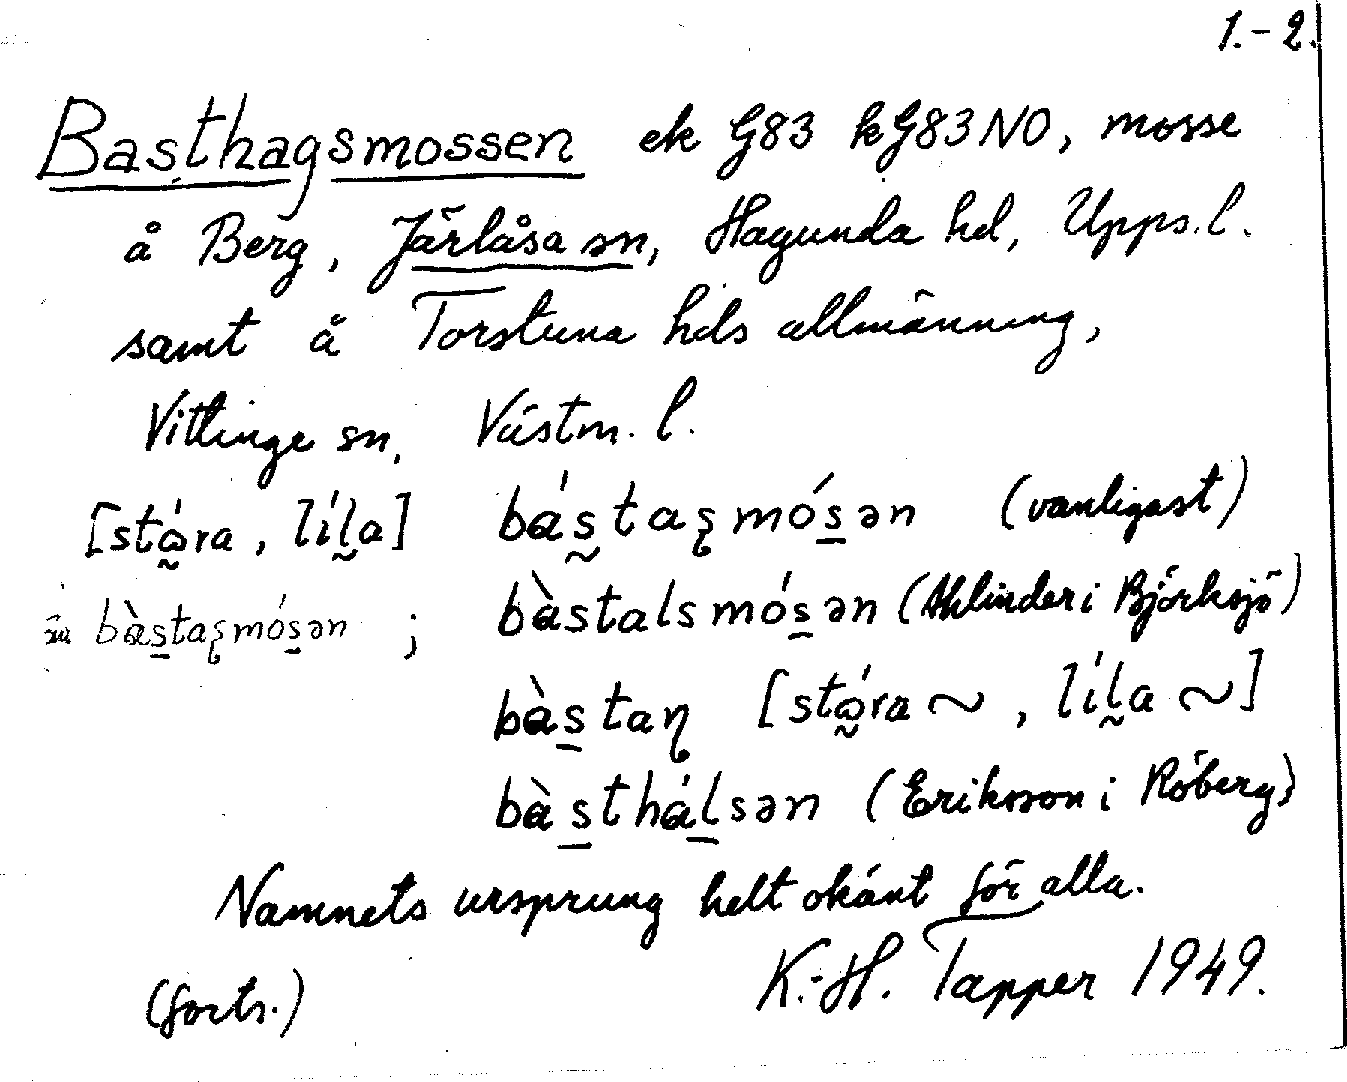 1.-2.
Basthagsmossen ek G83 kG83NO, mosse
å Berg, Järlåsa sn, Hagunda hd, Upps.l.
samt å Torstuna hds allmänning,
Vittinge sn, Västm. l.
[stɷ̰́ra, líl̰a] bás̰taʂmós̱ən (vanligast)
bàs̱taʂmós̱ən ; bàstalsmós̱ən (Ahlinder i Björksjö)
bàs̱taɳ [stɷ̰́ra ~, líl̰a ~]
bàs̱tháḻsən (Eriksson i Röberg)
Namnets ursprung helt okänt för alla.
(forts.) K.-H. Tapper 1949.